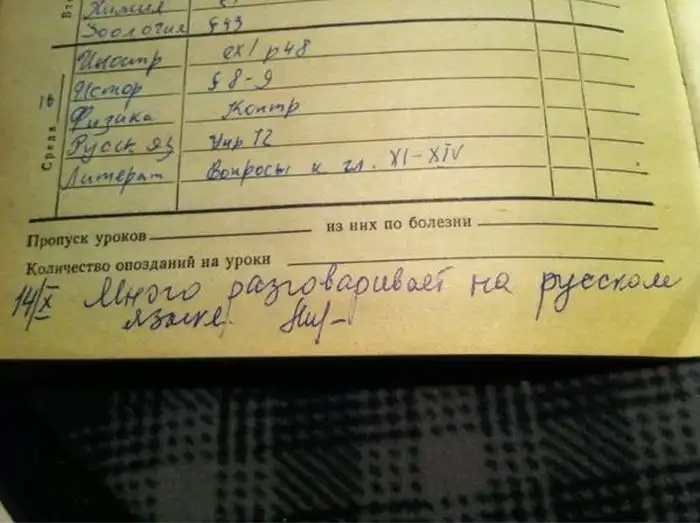 Вт
Химия
Зоология § 43
Среда 16
Иностр ex 1 p 48
Истор § 8-9
Физика Контр
Русск яз Упр 72
Литерат Вопросы к гл. XI-XIV
Пропуск уроков из них по болезни
Количество опозданий на уроки
14/X Много разговаривает на русском
языке.